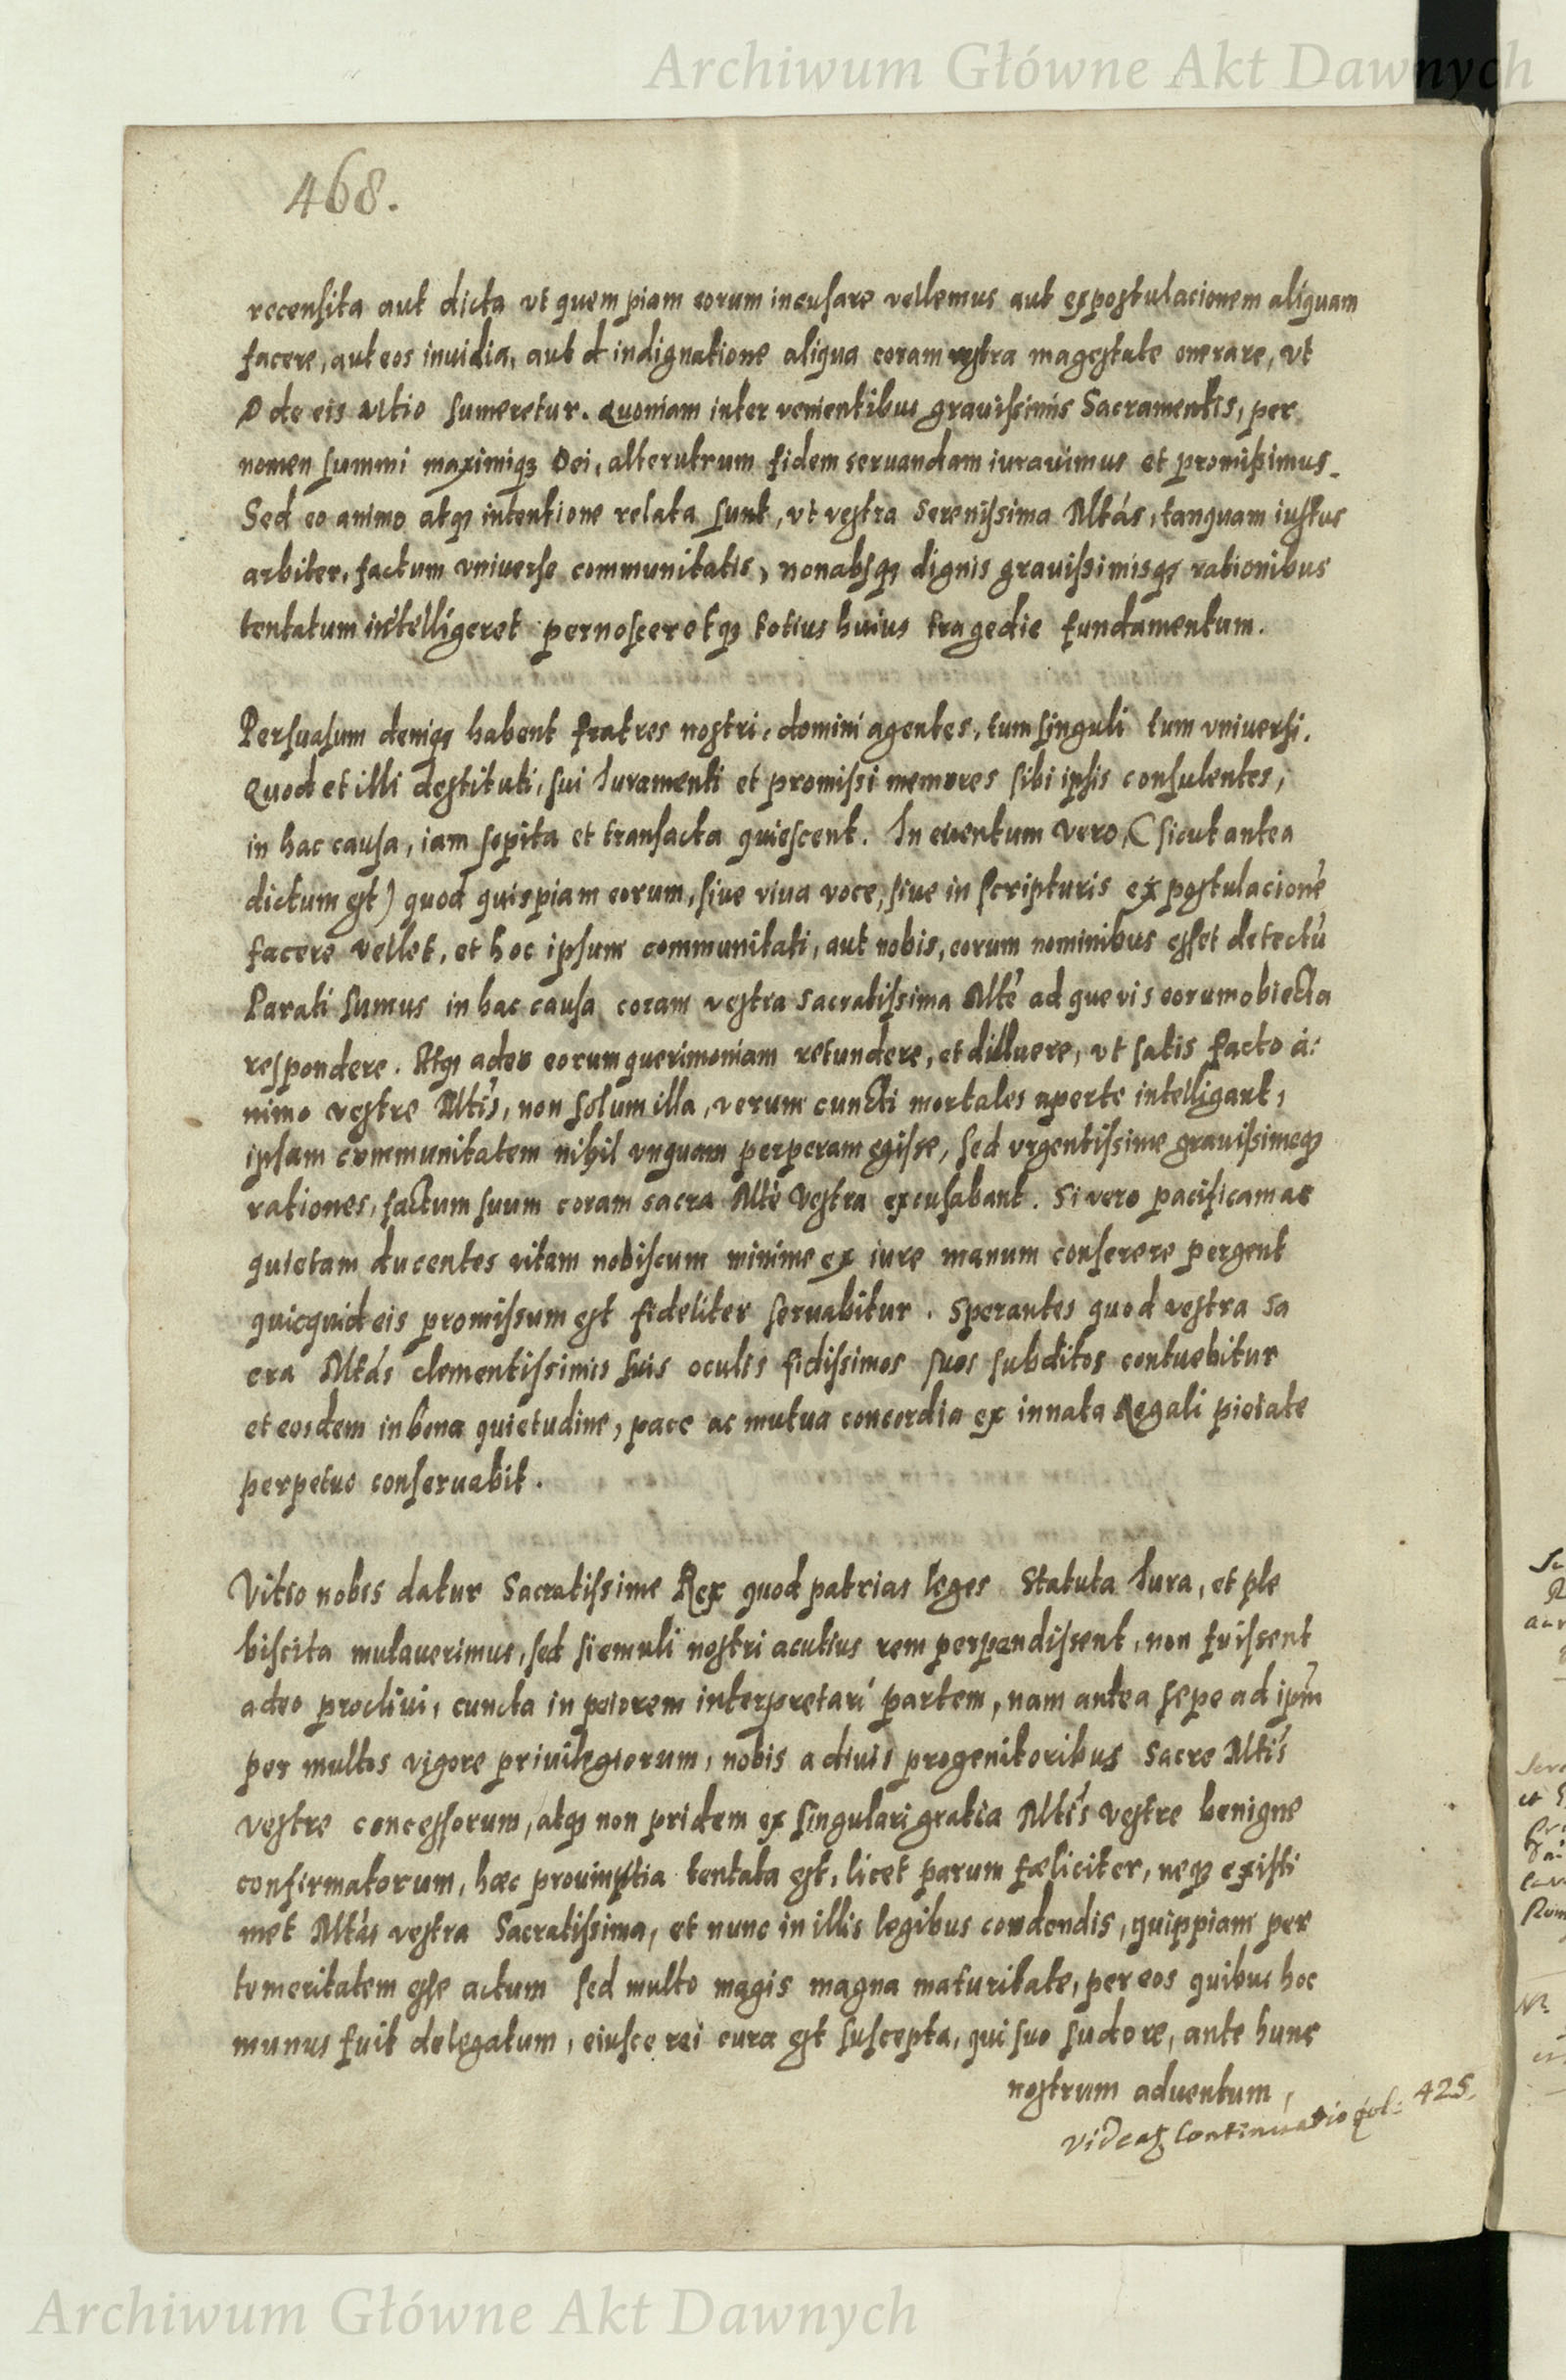 Archiwum Główne Akt Dawnych
468.
recensita aut dicta vt quem piam eorum incusare vellemus aut expostulacionem aliquam
facere, aut eos inuidia, aut d indignatione aliqua coram vestra magestate onerare, vt
de eis vltio sumeretur. Quoniam inter venientibus grauissimis Sacramentis, per
nomen summi maximiq3 Dei, alterutrum fidem seruandam iurauimus et promisimus_
Sed eo animo atq3 intentione relata sunt, vt vestra Serenissima Mtás, tanquam iustus
arbiter, factum vniuerse communitatis, non absq3 dignis grauissimisq3 rationibus
tentatum intelligeret pernosceretq3 totius huius tragedie fundamentum.
Persuasum deniq3 habent fratres nostri, domini agentes, tum singuli tum vniuersi.
Quod et illi destituti, sui Juramenti et promissi memores sibi ipsis consulentes,
in hac causa, iam sopita et transacta quiescent. In euentum vero, (sicut antea
dictum est) quod quispiam eorum, siue viua voce, siue in scripturis expostulacionē
facere vellet, et hoc ipsum communitati, aut nobis, eorum nominibus esset detectū
Parati sumus in hac causa coram vestra sacratissima Mtē ad que vis eorum obiecta
respondere. Atq3 adeo eorum querimoniam retundere, et diluere, vt satis facto á:
nimo vestre Mtis, non solum illa, verum cuncti mortales aperte intelligant,
ipsam communitatem nihil vnquam perperam egisse, sed vrgentissime grauissimeq3
rationes, factum suum coram sacra Mtē Vestra excusabant. Si vero pacificam ac
quietam ducentes vitam nobiscum minime ex iure manum conserere pergent
quicquid eis promissum est fideliter seruabitur. Sperantes quod vestra Sa
cra Mtás clementissimis suis oculis fidissimos suos subditos contuebitur
et eosdem in bona quietudine, pace ac mutua concordia ex innata Regali pietate
perpetuo conseruabit.
Vitio nobis datur Sacratissime Rex quod patrias leges Statuta Jura, et ple
biscita mutauerimus, sed si emuli nostri acutius rem perpendissent, non fuissent
adeo procliui, cuncta in peiorem interpretari partem, nam antea sepe ad ipm̄
per multos vigore priuilegiorum, nobis a diuis progenitoribus Sacre Mtis
vestre concessorum, atq3 non pridem ex singulari gratia Mtis Vestre benigne
confirmatorum, hæc prouintia tentata est, licet parum fæliciter, neq3 existi
met Mtás vestra Sacratissima, et nunc in illis legibus condendis, quippiam per
temeritatem esse actum sed multo magis magna maturitate, per eos quibus hoc
munus fuit delegatum, eiusce rei cura est suscepta, qui suo sudore, ante hunc
nostrum aduentum,
Videat3 Continuatio fol: 425.
Archiwum Główne Akt Dawnych